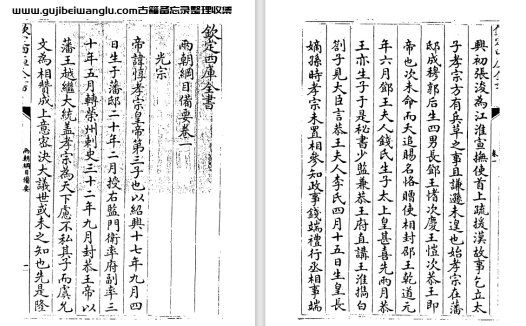 www.gujibeiwanglu.com古籍备忘录整理收集
欽定四庫全書
兩朝綱目備要卷一
光宗
帝諱惇孝宗皇帝第三子也以紹興十七年九月四
日生于藩邸二十年二月授右監門衛率府副率三
十年五月轉榮州刺史三十二年九月封恭王帝以
藩王越繼大統蓋孝宗為天下慮不私其子而虞允
文為相贊成上意密決大議世或未之知也先是隆
兩朝綱目備要
興初張浚為江淮宣撫使首上疏援漢故事乞立太
子孝宗方有兵革之事且謙遜未遑也始孝宗在藩
邸成穆郭后生四男長鄧王愭次慶王愷次恭王即
帝也次未命而夭追賜名恪贈使相封邵王乾道元
年六月鄧王夫人錢氏生子太上皇甚喜先兩月恭
王亦生子于是秘書少監兼恭王府直講王淮搗白
劄子見大臣言恭王夫人李氏四月十五日生皇長
嫡孫時孝宗未置相參知政事錢端禮行丞相事端